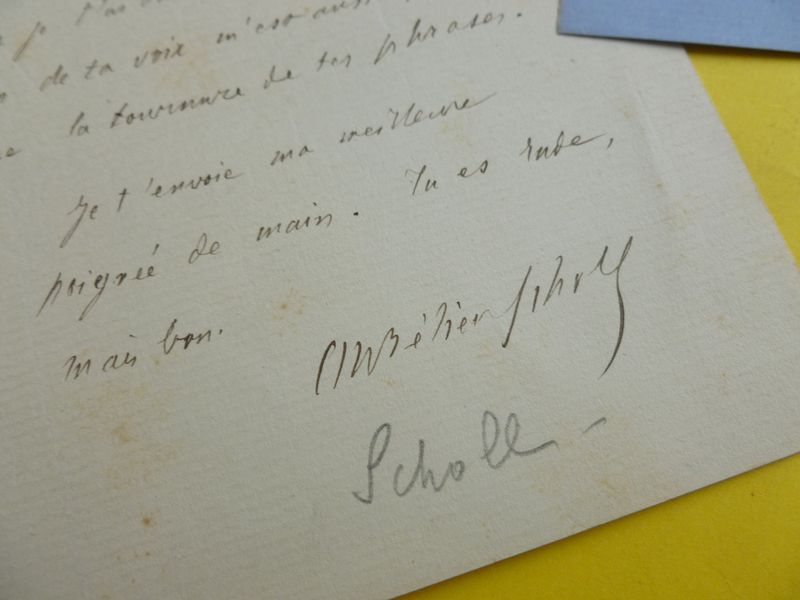 je t'ai
de ta voix m'est aussi
la tournure de tes phrases.
Je t'envoie ma meilleure
poignée de main. Tu es rude,
mais bon.
Aurélien Scholl
Scholl -